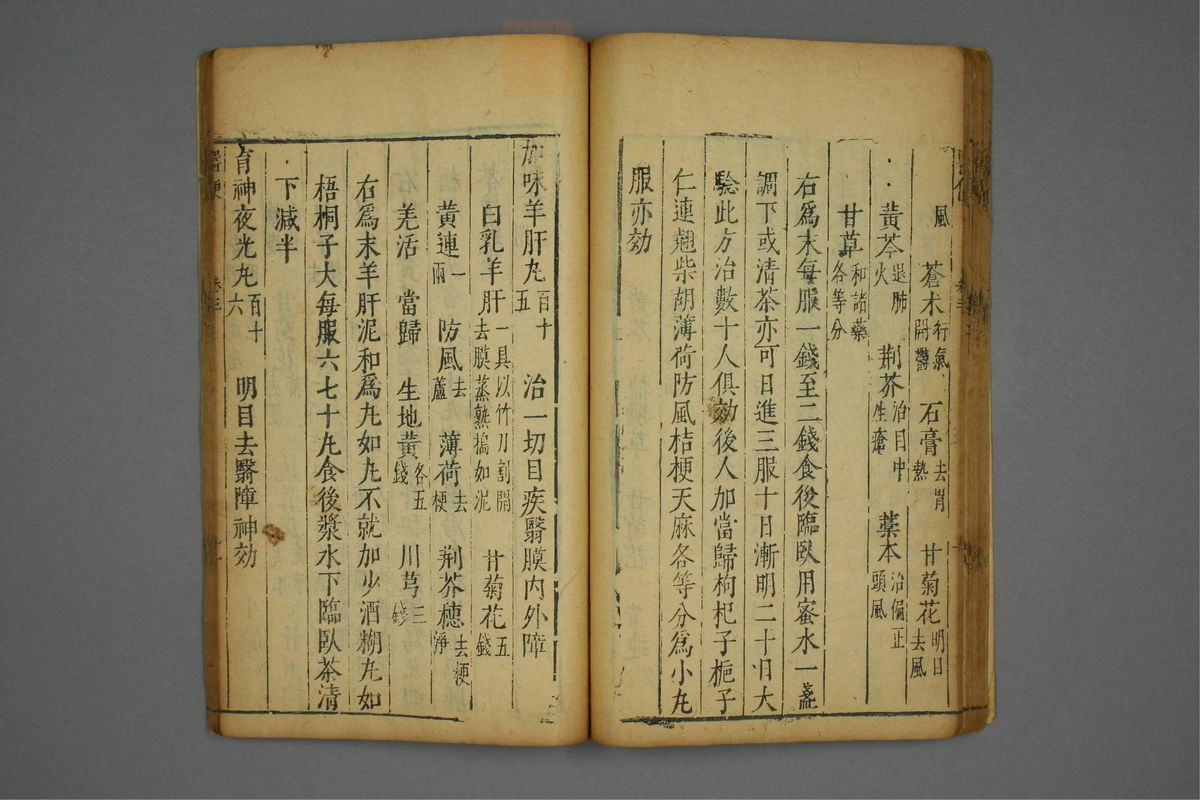 風　蒼朮行氣開鬱　石膏去胃熱　甘菊花明目去風
黃芩退肺火　荆芥治目中生瘡　藁本治偏正頭風
甘草和諸藥各等分
右爲末每服一錢至二錢食後臨臥用蜜水一盞
調下或清茶亦可日進三服十日漸明二十日大
騐此方治數十人俱効後人加當歸枸杞子梔子
仁連翹柴胡薄荷防風桔梗天麻各等分爲小丸
服亦効
加味羊肝丸百十五　治一切目疾翳膜内外障
白乳羊肝一具以竹刀割開去膜蒸熟搗如泥　甘菊花五錢
黃連一兩　防風去蘆　薄荷去梗　荆芥穗去梗淨
羗活　當歸　生地黃各五錢　川芎三錢
右爲末羊肝泥和爲丸如丸不就加少酒糊丸如
梧桐子大每服六七十丸食後漿水下臨臥茶清
下減半
育神夜光丸百十六　明目去翳障神効
卷三